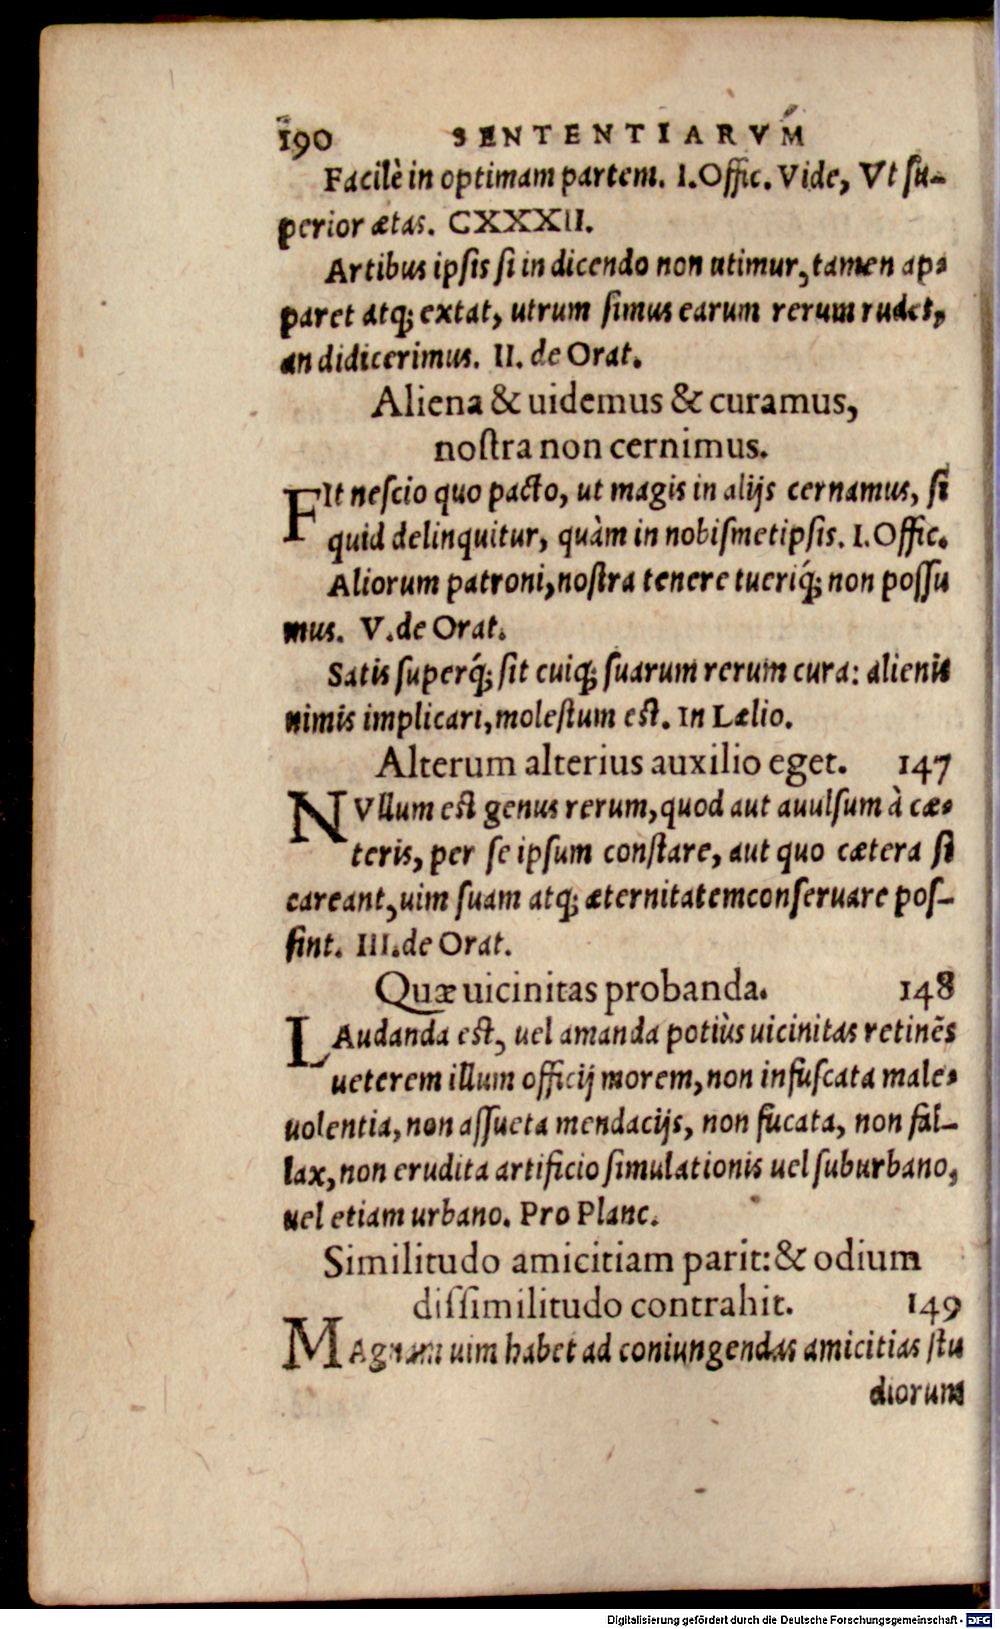 190 SENTENTIARVM
Facilè in optimam partem. I. Offic. Vide, Vt su-
perior ætas. CXXXII.
Artibus ipsis si in dicendo non utimur, tamen ap-
paret atq; extat, utrum simus earum rerum rudes,
an didicerimus. II. de Orat.
Aliena & uidemus & curamus,
nostra non cernimus.
FIt nescio quo pacto, ut magis in alijs cernamus, si
quid delinquitur, quàm in nobismetipsis. I. Offic.
Aliorum patroni, nostra tenere tueriq́; non possu
mus. V. de Orat.
Satis superq́; sit cuiq; suarum rerum cura: alienis
nimis implicari, molestum est. In Lælio.
Alterum alterius auxilio eget. 147
NVllum est genus rerum, quod aut auulsum à cæ-
teris, per se ipsum constare, aut quo cætera si
careant, uim suam atq; æternitatem conseruare pos-
sint. III. de Orat.
Quæ uicinitas probanda. 148
LAudanda est, uel amanda potiùs uicinitas retinẽs
ueterem illum officij morem, non infuscata male-
uolentia, non assueta mendacijs, non fucata, non fal-
lax, non erudita artificio simulationis uel suburbano,
uel etiam urbano. Pro Planc.
Similitudo amicitiam parit: & odium
dissimilitudo contrahit. 149
MAgnam uim habet ad coniungendas amicitias stu
diorum
Digitalisierung gefördert durch die Deutsche Forschungsgemeinschaft - DFG